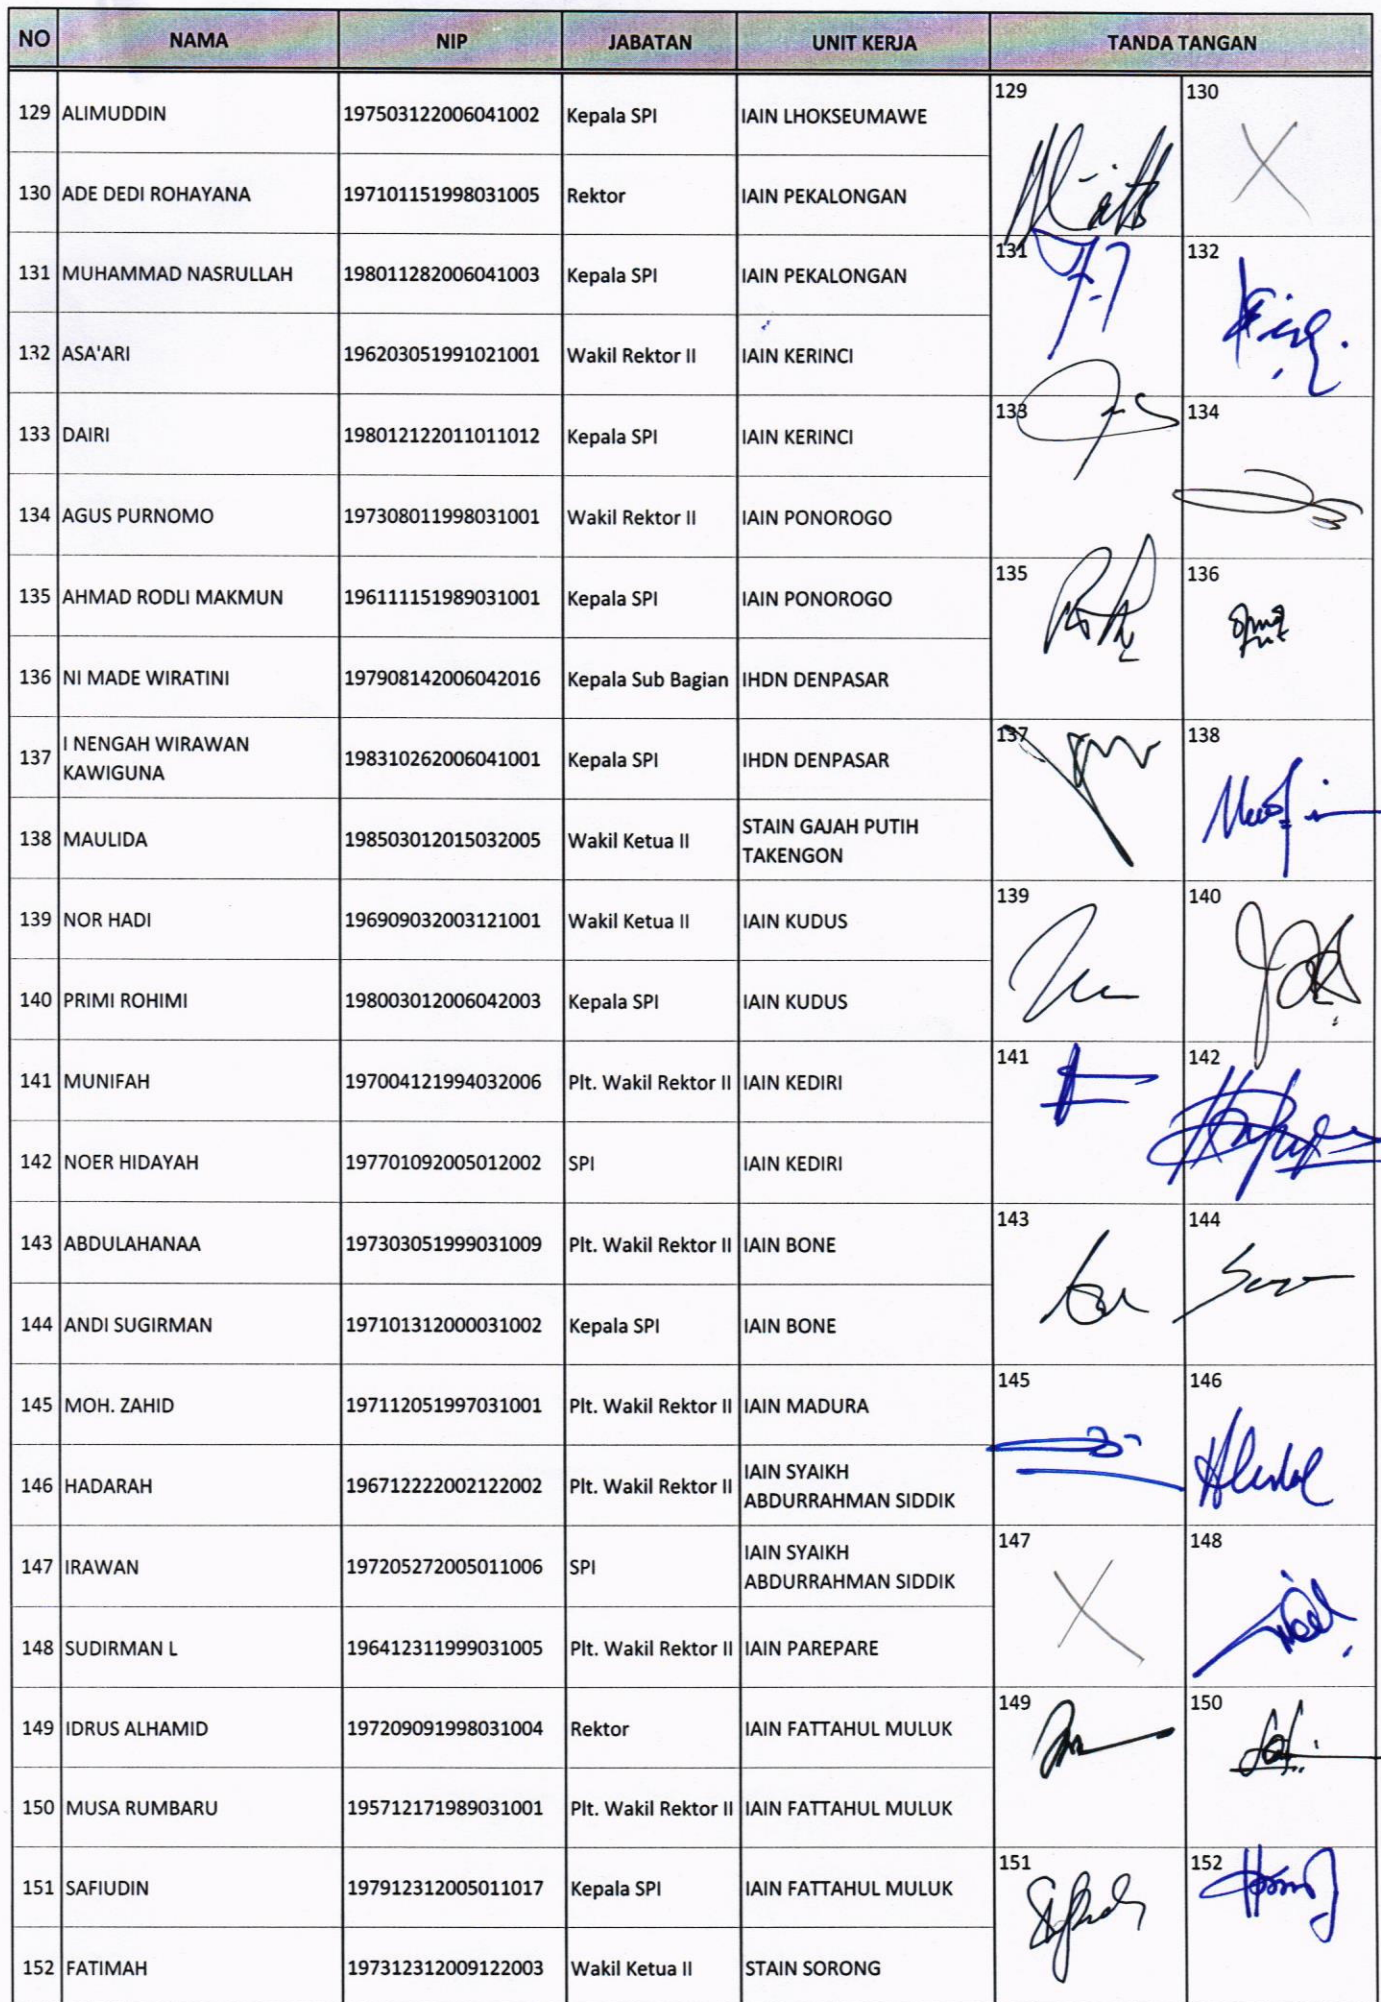 NO NAMA NIP JABATAN UNIT KERJA TANDA TANGAN
129 ALIMUDDIN 197503122006041002 Kepala SPI IAIN LHOKSEUMAWE 129 130
130 ADE DEDI ROHAYANA 197101151998031005 Rektor IAIN PEKALONGAN
131 MUHAMMAD NASRULLAH 198011282006041003 Kepala SPI IAIN PEKALONGAN 131 132
132 ASA'ARI 196203051991021001 Wakil Rektor II IAIN KERINCI
133 DAIRI 198012122011011012 Kepala SPI IAIN KERINCI 133 134
134 AGUS PURNOMO 197308011998031001 Wakil Rektor II IAIN PONOROGO
135 AHMAD RODLI MAKMUN 196111151989031001 Kepala SPI IAIN PONOROGO 135 136
136 NI MADE WIRATINI 197908142006042016 Kepala Sub Bagian IHDN DENPASAR
I NENGAH WIRAWAN
137 KAWIGUNA 198310262006041001 Kepala SPI IHDN DENPASAR 137 138
138 MAULIDA 198503012015032005 Wakil Ketua II STAIN GAJAH PUTIH
TAKENGON
139 NOR HADI 196909032003121001 Wakil Ketua II IAIN KUDUS 139 140
140 PRIMI ROHIMI 198003012006042003 Kepala SPI IAIN KUDUS
141 MUNIFAH 197004121994032006 Plt. Wakil Rektor II IAIN KEDIRI 141 142
142 NOER HIDAYAH 197701092005012002 SPI IAIN KEDIRI
143 ABDULAHANAA 197303051999031009 Plt. Wakil Rektor II IAIN BONE 143 144
144 ANDI SUGIRMAN 197101312000031002 Kepala SPI IAIN BONE
145 MOH. ZAHID 197112051997031001 Plt. Wakil Rektor II IAIN MADURA 145 146
146 HADARAH 196712222002122002 Plt. Wakil Rektor II IAIN SYAIKH
ABDURRAHMAN SIDDIK
147 IRAWAN 197205272005011006 SPI IAIN SYAIKH
ABDURRAHMAN SIDDIK 147 148
148 SUDIRMAN L 196412311999031005 Plt. Wakil Rektor II IAIN PAREPARE
149 IDRUS ALHAMID 197209091998031004 Rektor IAIN FATTAHUL MULUK 149 150
150 MUSA RUMBARU 195712171989031001 Plt. Wakil Rektor II IAIN FATTAHUL MULUK
151 SAFIUDIN 197912312005011017 Kepala SPI IAIN FATTAHUL MULUK 151 152
152 FATIMAH 197312312009122003 Wakil Ketua II STAIN SORONG